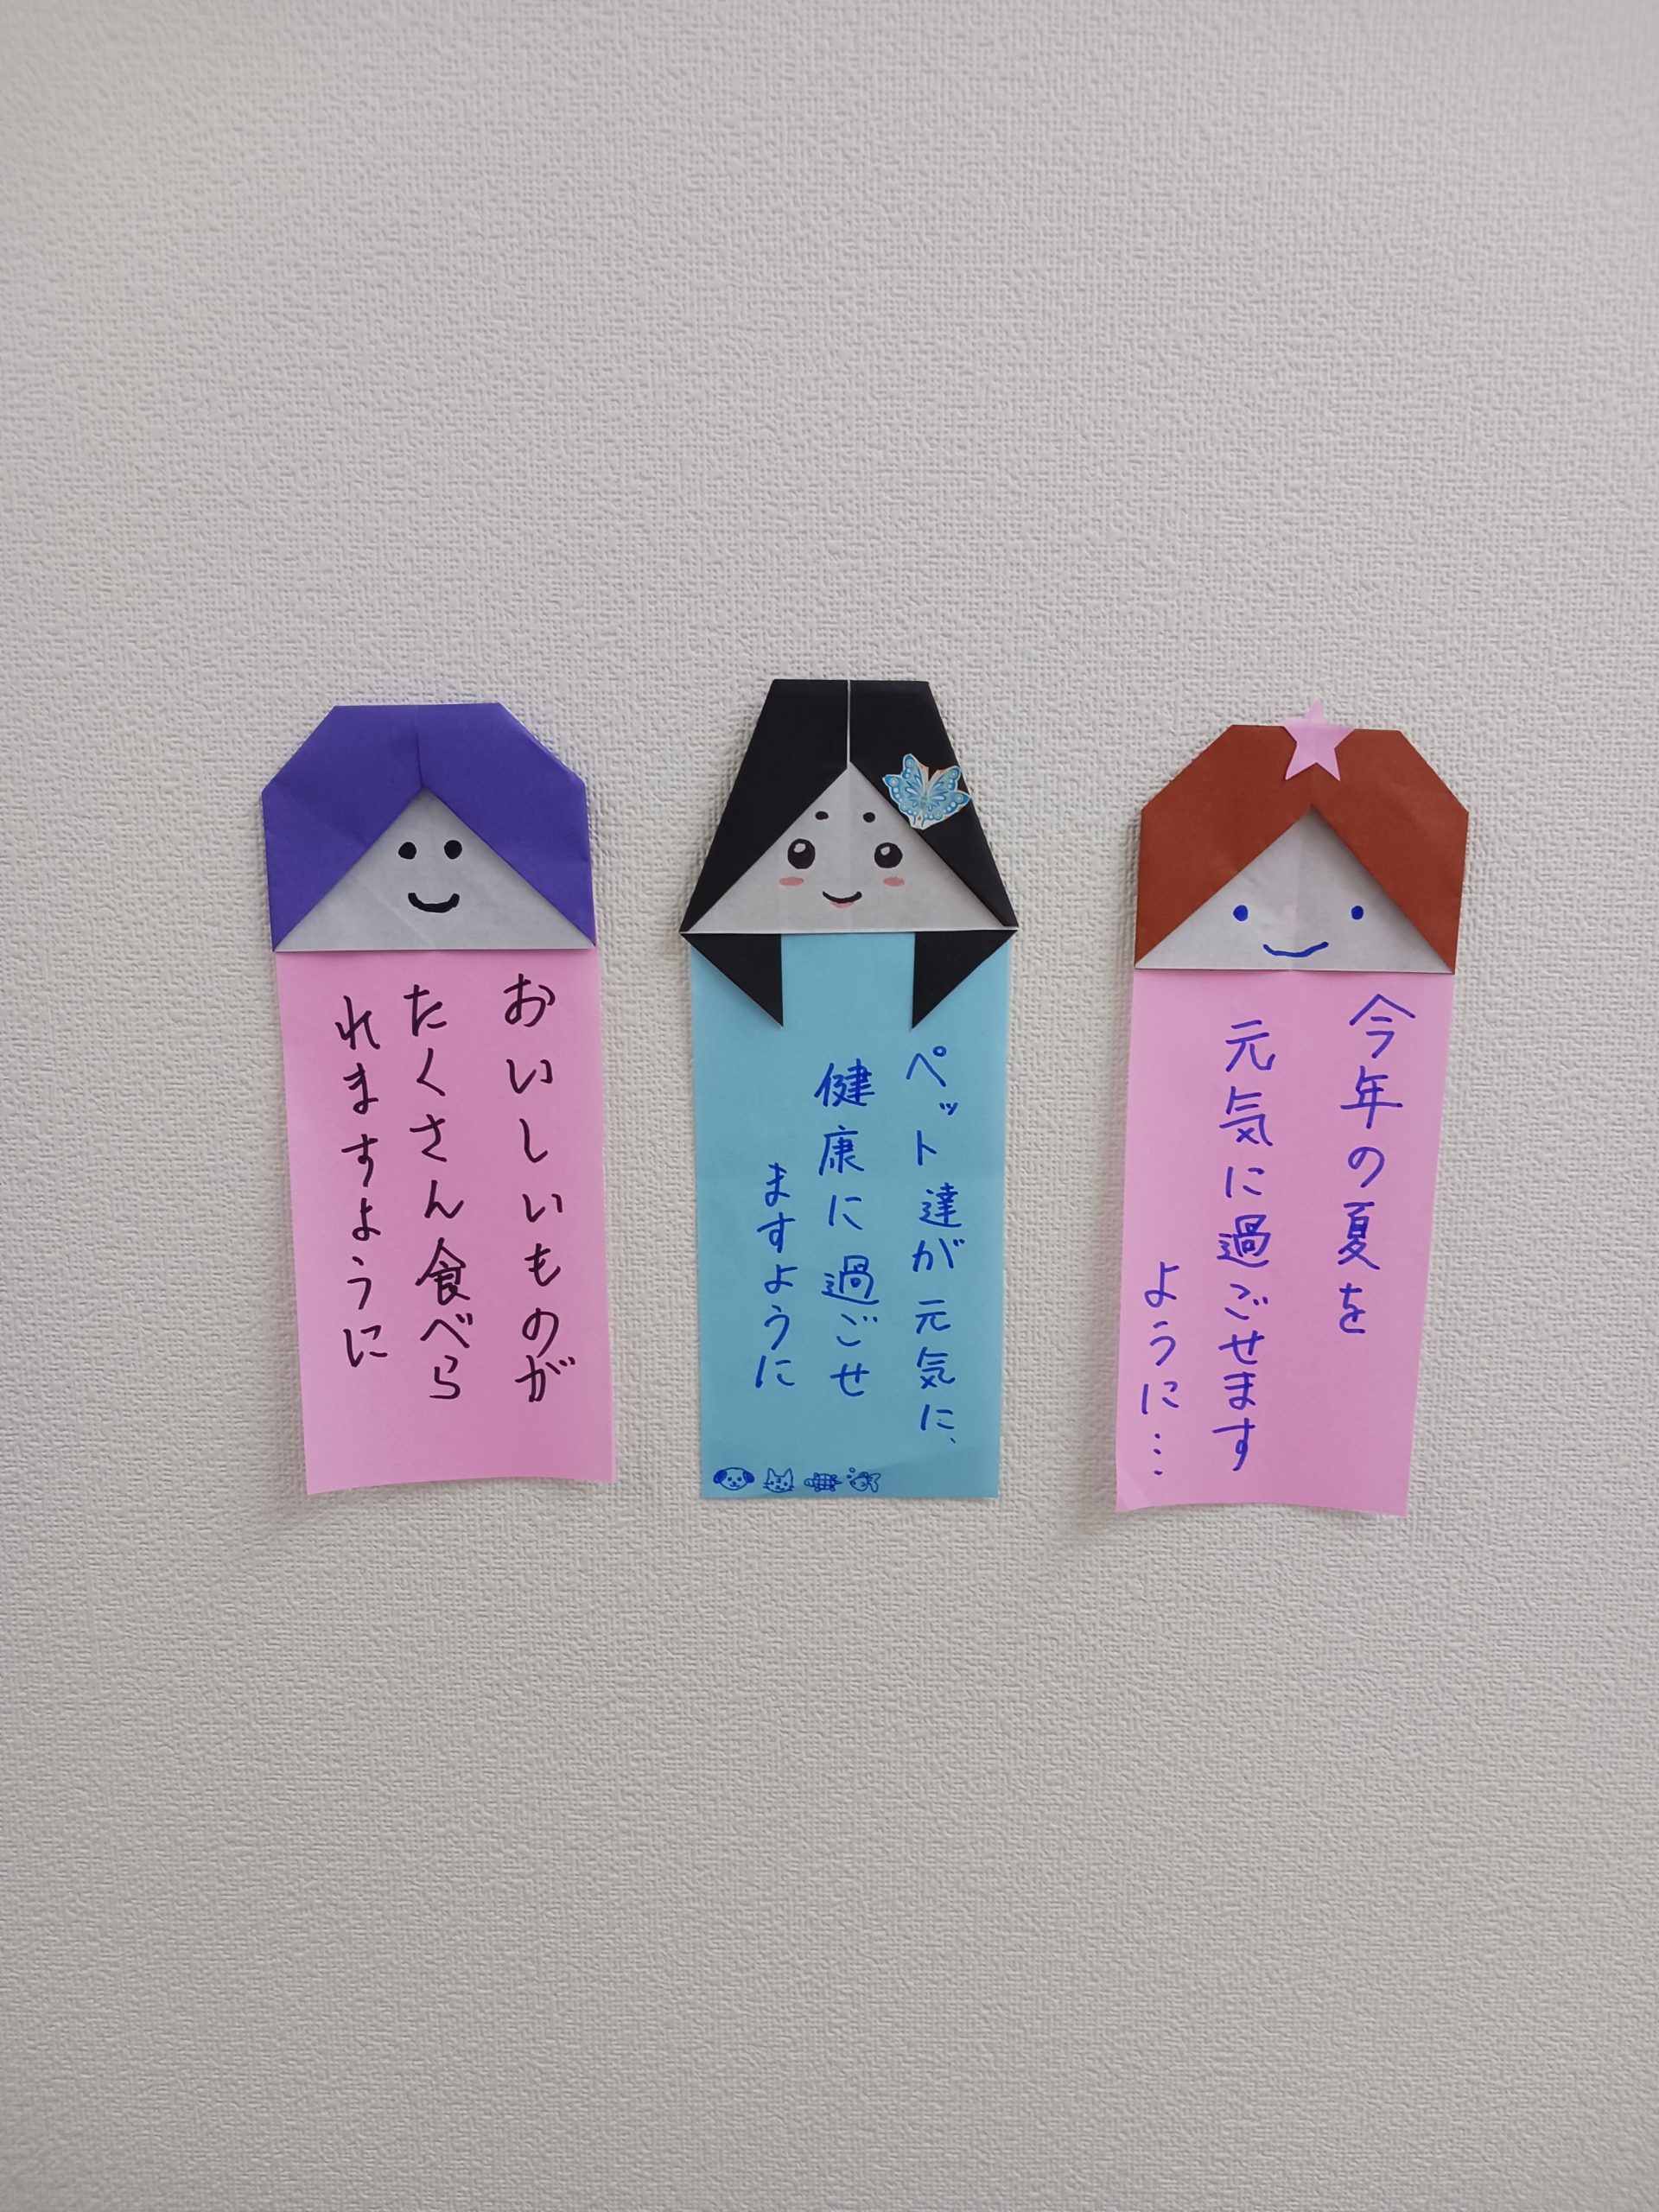 おいしいものが
たくさん食べら
れますように
ペット達が元気に、
健康に過ごせ
ますように
今年の夏を
元気に過ごせます
ように…